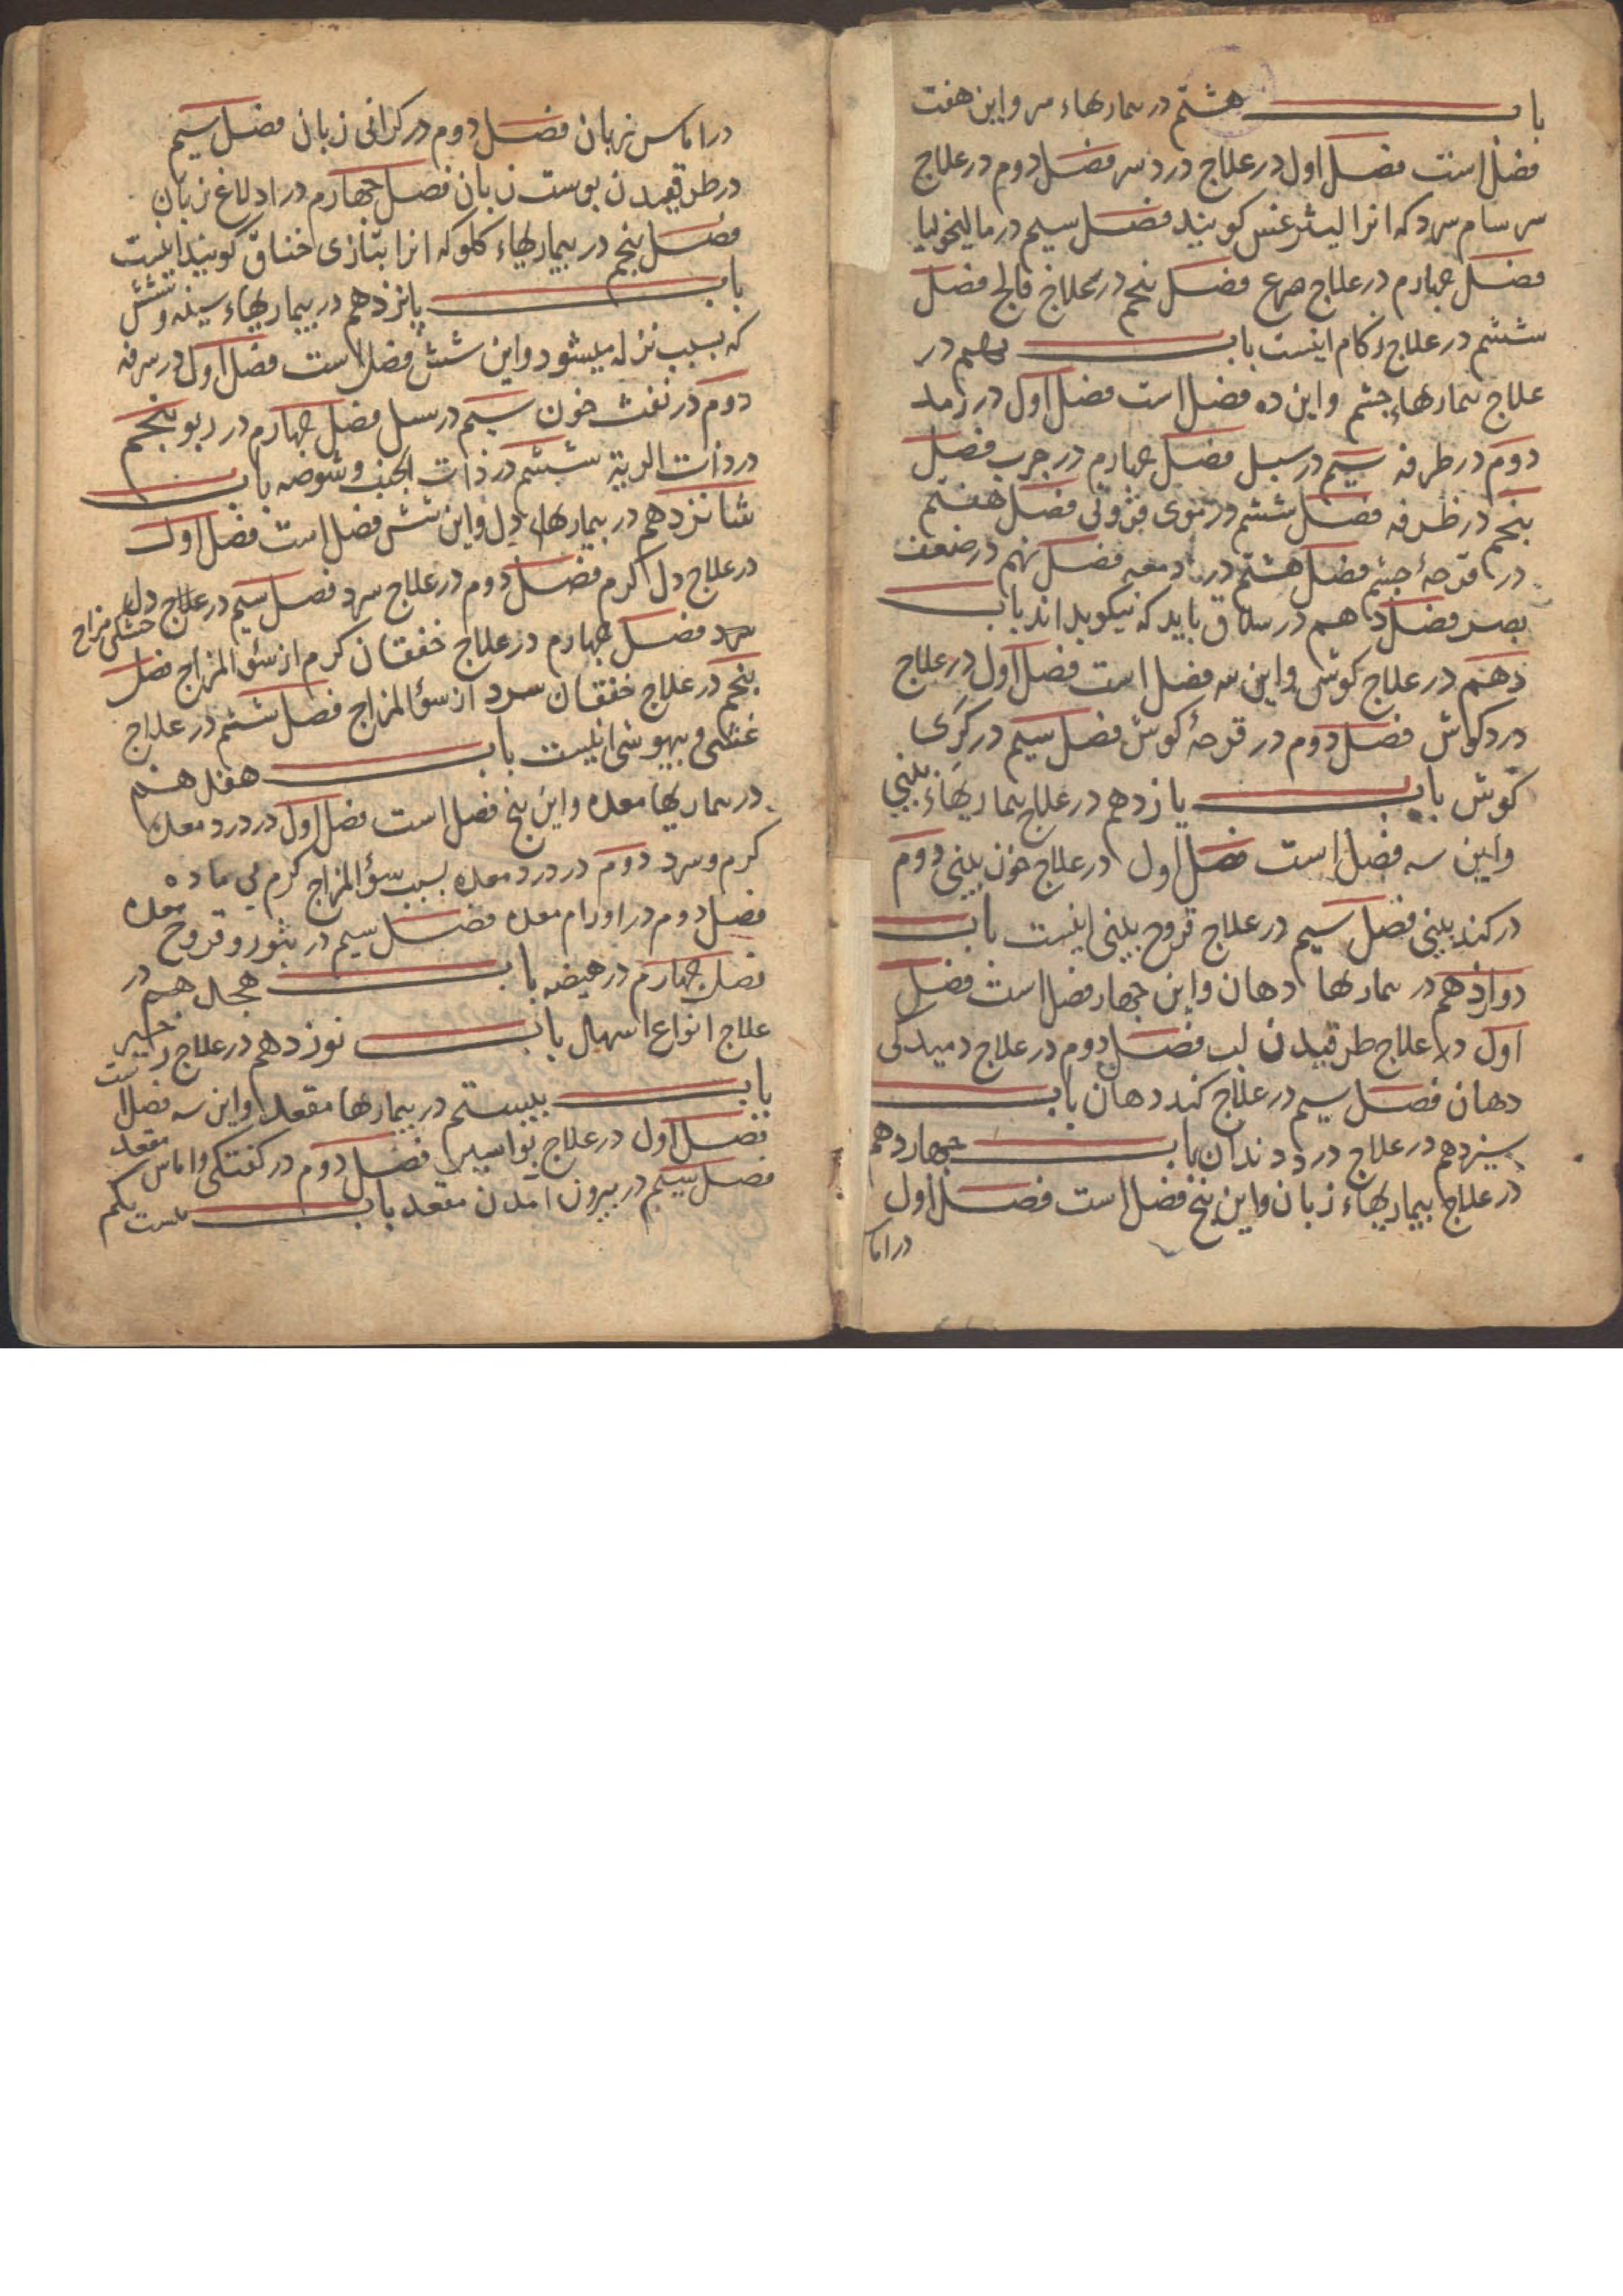 باب هشتم در بیمارهاء سر و این هفت
فضل است فضل اول در علاج درد سر فضل دوم در علاج
سرسام سرد که انرا لیثرغس کویند فضل سیم در مالیخولیا
فضل چهارم در علاج صرع فضل پنجم در علاج فالج فضل
ششم در علاج زکام اینست باب نهم در
علاج بیمارهاء چشم و این ده فضل است فضل اول در رمد
دوم در طرفه سیم در سبل فضل چهارم در جرب فضل
پنجم در ظرفه فضل ششم در نتوی قرنوتی فضل هفتم
در قرحهٔ چشم فضل هشتم در دمعه فضل نهم در ضعف
بصر فضل دهم در سلاق باید که نیکو بداند باب
دهم در علاج کوش و این سه فضل است فضل اول در علاج
درد کوش فضل دوم در قرحهٔ کوش فضل سیم در کری
کوش باب یازدهم در علاج بیماریهاء بینی
و این سه فضل است فضل اول در علاج خون بینی دوم
در کند بینی فضل سیم در علاج قروح بینی اینست باب
دوازدهم در بیمارها دهان و این چهار فضل است فضل
اول در علاج طرقیدن لب فضل دوم در علاج دمیدکی
دهان فصل سیم در علاج کند دهان باب
سیزدهم در علاج درد دندان باب چهاردهم
در علاج بیماریهاء زبان و این پنج فضل است فصل اول
در اما
در اماس زبان فضل دوم در کرانی زبان فضل سیم
در طرقیدن پوست زبان فصل چهارم در ادلاغ زبان
فضل پنجم در بیماریهاء کلو که انرا بتازی خناق کویند اینست
باب پانزدهم در بیماریهاء سینه و شش
که بسبب نزله میشود و این شش فضل است فضل اول در سرفه
دوم در نفث خون سیم در سل فضل چهارم در ربو پنجم
در ذات الریة ششم در ذات الجنب و شوصه باب
شانزدهم در بیمارهاء دل و این شش فضل است فضل اول
در علاج دل کرم فضل دوم در علاج سرد فضل سیم در علاج دل خشکی مزاج
سرد فضل چهارم در علاج خفقان کرم از سؤ المزاج فضل
پنجم در علاج خفقان سرد از سؤ المزاج فضل ششم در علاج
غشی و بیهوشی اینست باب هفدهم
در بیماریها معده و این پنج فضل است فضل اول در درد معده
کرم و سرد دوم در درد معده بسبب سؤ المزاج کرم بی ماده
فضل دوم در اورام معده فضل سیم در بثور و قروح معده
فضل چهارم در هیضه باب هجدهم در
علاج انواع اسهال باب نوزدهم در علاج زحیر
باب بیستم در بیمارها مقعد و این سه فضل است
فضل اول در علاج بواسیر فضل دوم در کفتکی و اماس مقعد
فضل سیم در بیرون امدن مقعد باب بیست یکم